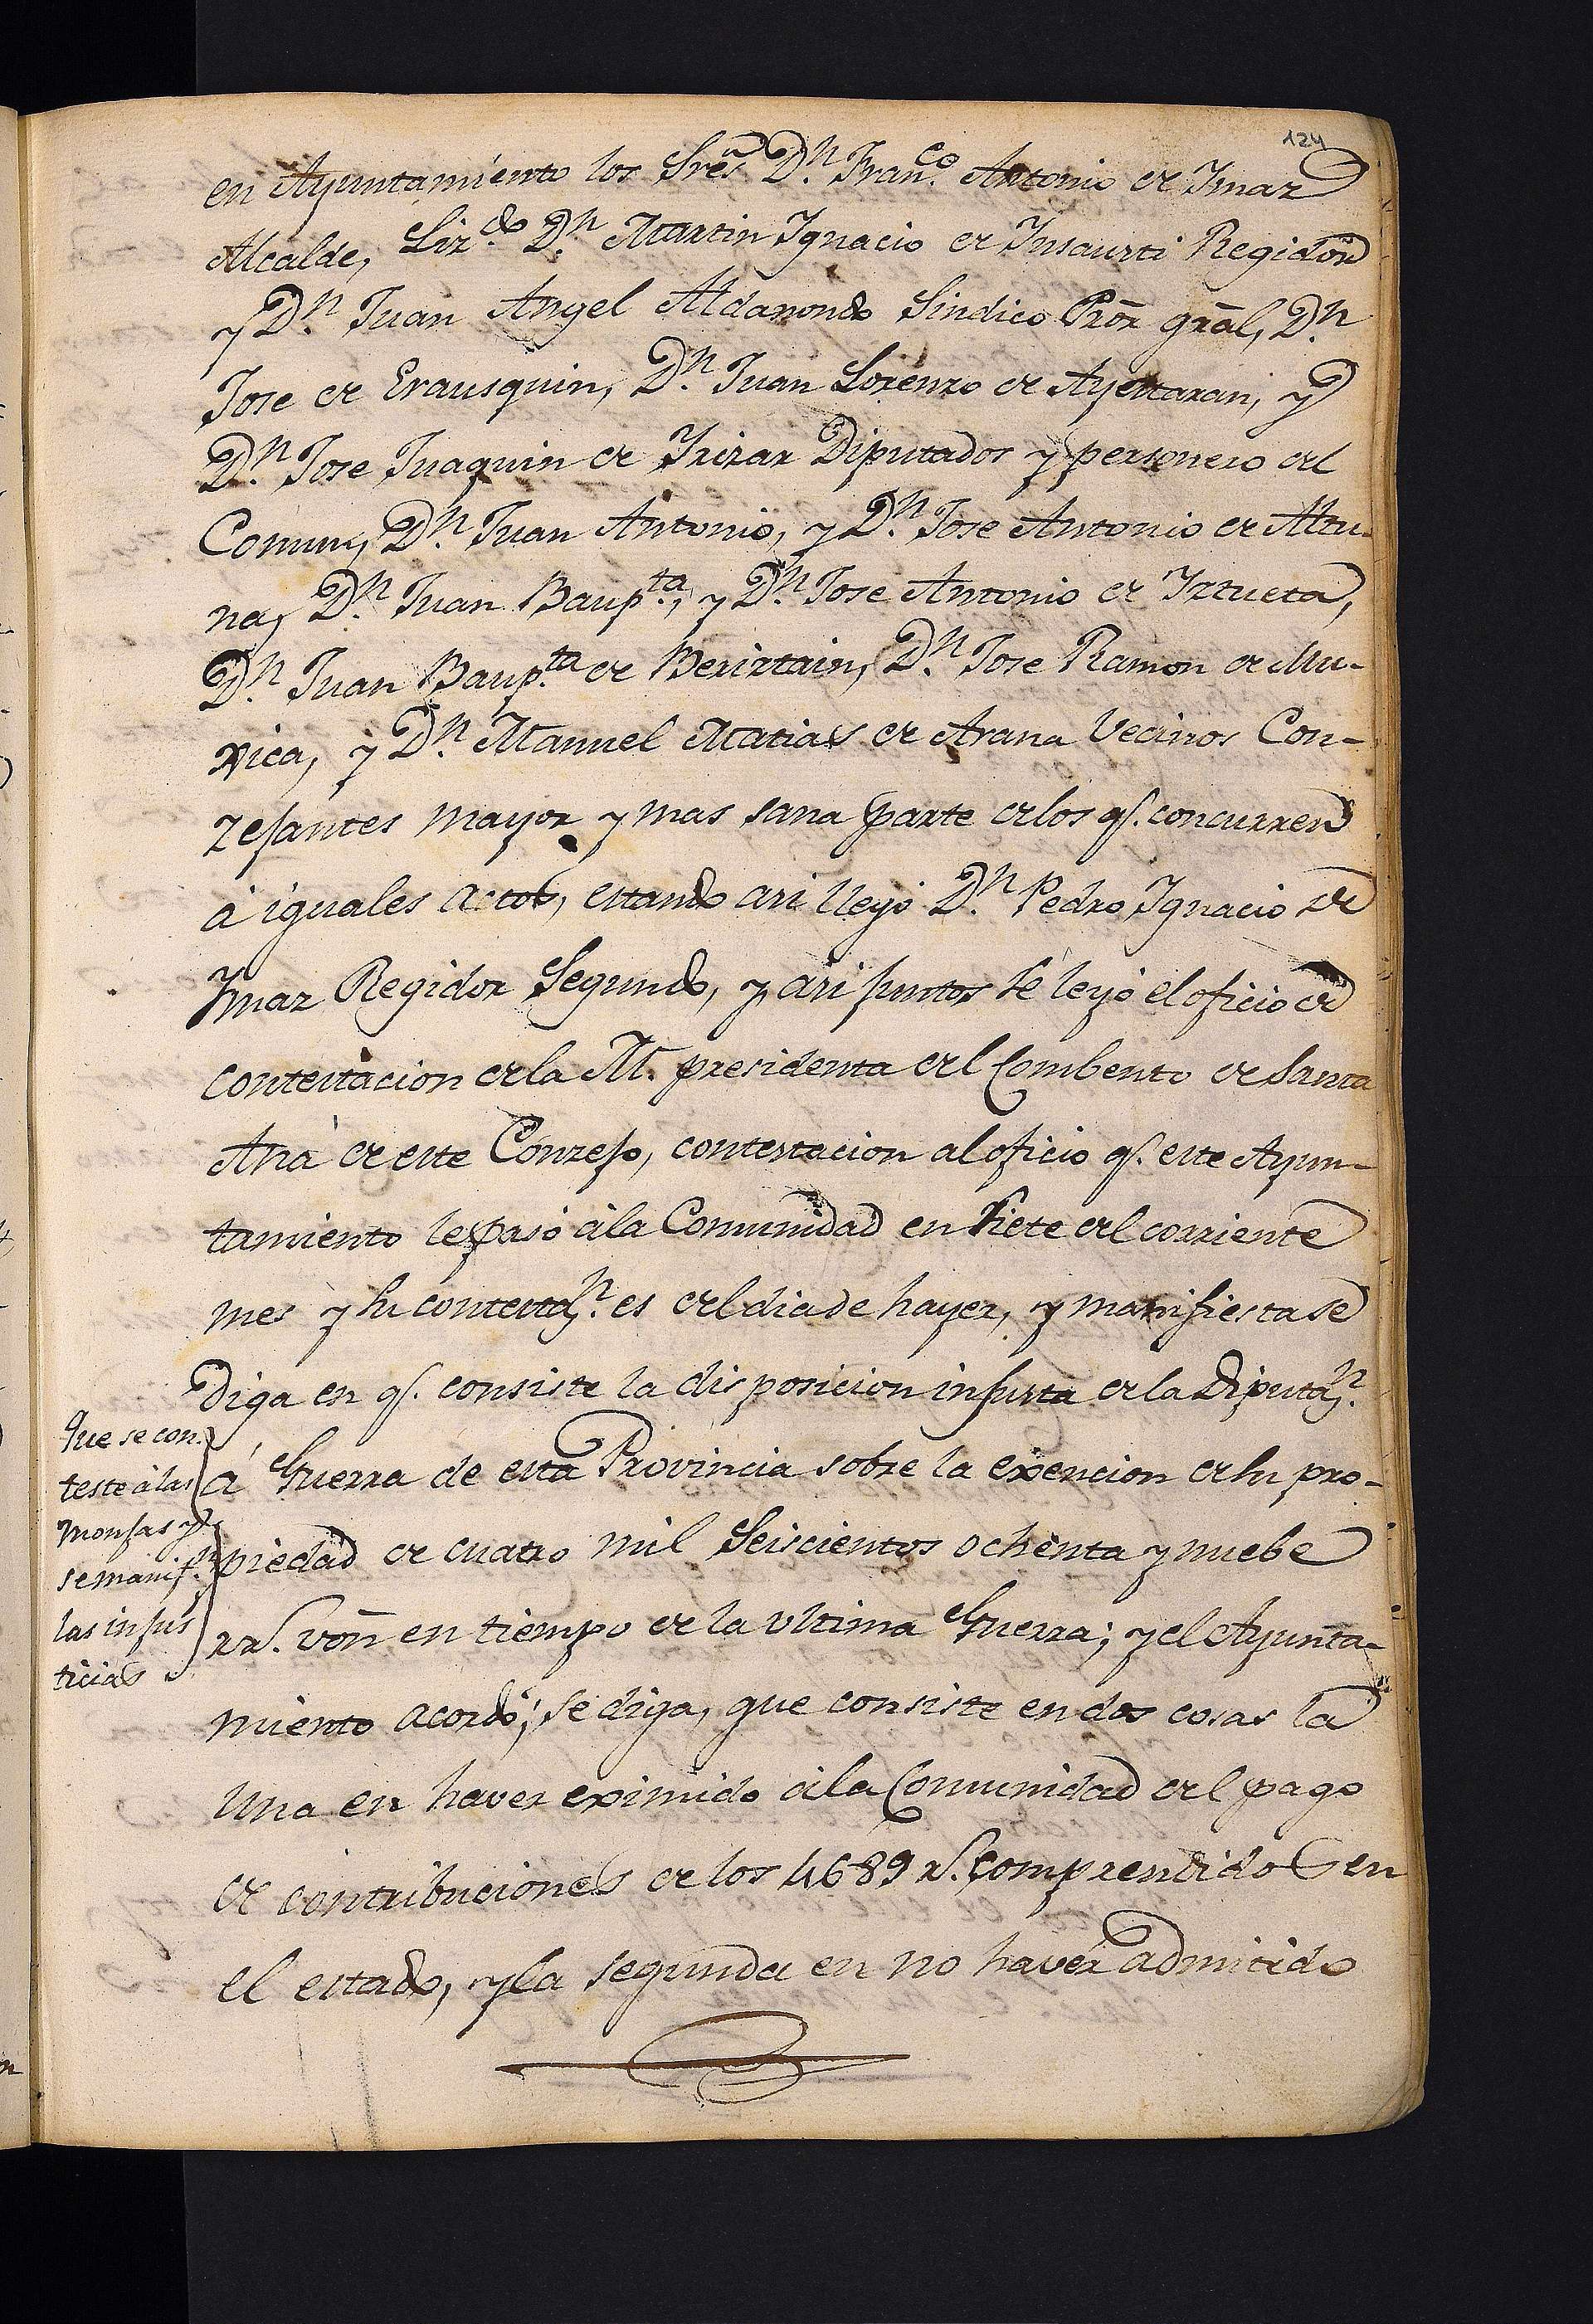 124
en Ayuntamiento los Sres Dn. Franco. Antonio de Imaz
Alcalde, Lizdo. Dn. Martin Ignacio de Insausti Regidor
y Dn. Juan Angel Aldanondo Sindico Pror gral, Dn.
Jose de Erausquin, Dn. Juan Lorenzo de Ayestaran, y
Dn. Jose Juaquin de Yrizar Diputados y personero del
Comun, Dn. Juan Antonio, y Dn. Jose Antonio de Altu-
na, Dn. Juan Baupta., y Dn. Jose Antonio de Iztueta,
Dn. Juan Baupta. de Beriztain, Dn. Jose Ramon de Mu-
xica, y Dn. Manuel Matias de Arana Vecinos Con-
zejantes mayor y mas sana parte de los q. concurren
á iguales actos, estando asi llegó Dn. Pedro Ignacio de
Ymaz Regidor Segundo, y asi juntos se leyó el oficio de
contestacion de la M. presidenta del Combento de Santa
Ana de este Conzejo, contestacion al oficio q. este Ayun-
tamiento le pasó á la Comunidad en siete del corriente
mes y su contestan. es del dia de hayer, y manifiesta se
diga en q. consiste la disposicion injusta de la Diputan.
Que se con-
teste á las
monjas y
se manifn.
las injus
ticias
á Guerra de esta Provincia sobre la exencion de su pro-
piedad de cuatro mil Seiscientos ochenta y nuebe
rs. von en tiempo de la ultima Guerra; y el Ayunta-
miento acordó; se diga, que consiste en dos cosas la
una en haver eximido á la Comunidad del pago
de contribuciones de los 4689 rs. comprendidos en
el estado, y la segunda en no haver admitido